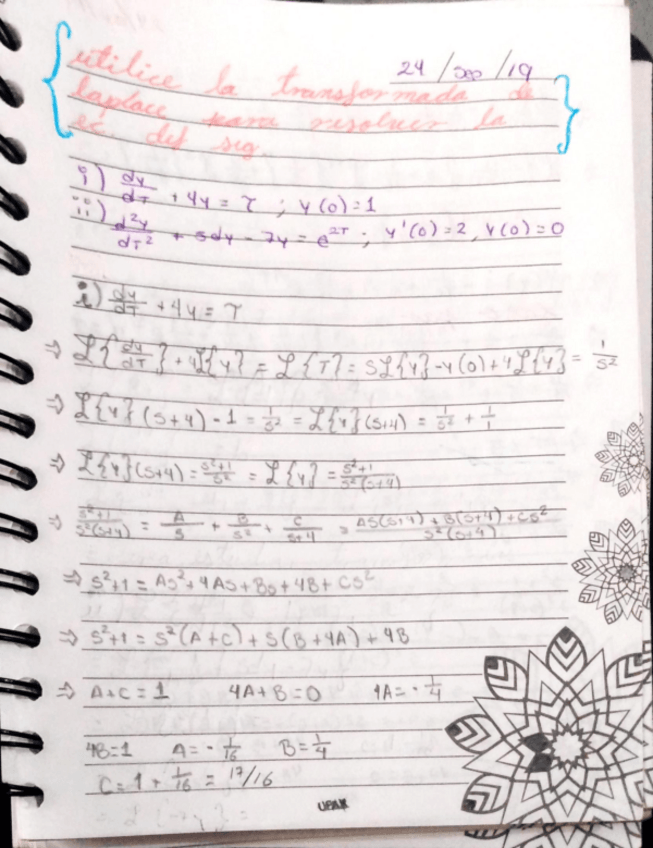 24/sep/19
utilice la transformada de
laplace para resolver la
ec. def sig
i) dy/dT + 4y = T ; y(0)=1
ii) d²y/dT² + 5dy - 7y = e^2T ; y'(0)=2, y(0)=0
i) dy/dT + 4y = T
⇒ ℒ{dy/dT} + 4ℒ{y} = ℒ{T} = Sℒ{y} - y(0) + 4ℒ{y} = 1/S²
⇒ ℒ{y}(S+4) - 1 = 1/S² = ℒ{y}(S+4) = 1/S² + 1/1
⇒ ℒ{y}(S+4) = S²+1/S² = ℒ{y} = S²+1/S²(S+4)
⇒ S²+1/S²(S+4) = A/S + B/S² + C/S+4 = AS(S+4) + B(S+4) + CS²/S²(S+4)
⇒ S²+1 = AS² + 4AS + BS + 4B + CS²
⇒ S²+1 = S²(A+C) + S(B+4A) + 4B
⇒ A+C = 1 4A+B=0 4A = -1/4
4B=1 A = -1/16 B = 1/4
C = 1 + 1/16 = 17/16
UPAK